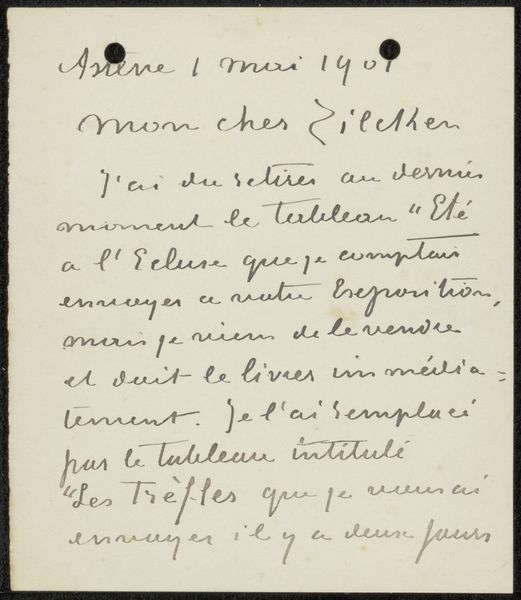 Astene 1 mai 1901
Mon cher Zilcken
J'ai du retirer au dernier
moment le tableau "Eté
a l'Ecluse que je comptais
envoyer a votre Exposition,
mais je viens de le vendre
et doit le livrer immédia=
tement. Je l'ai remplacé
par le tableau intitulé
"Les Trèfles que je vous ai
envoyer il y a deux jours